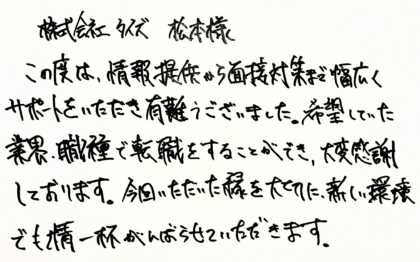 株式会社 タイズ 松本様
この度は、情報提供から面接対策まで幅広く
サポートをいただき有難うございました。希望していた
業界、職種で転職をすることができ、大変感謝
しております。今回いただいた縁を大切に、新しい環境
でも精一杯がんばらせていただきます。